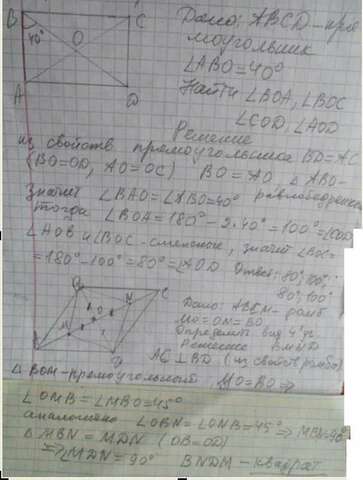 B
C
40°
O
A
D
Дано: ABCD - пря
моугольник
∠ABO=40°
Найти ∠BOA, ∠BOC
∠COD, ∠AOD
Решение
из свойств прямоугольника BD=AC
(BO=OD, AO=OC) BO=AO, △ ABO-
Значит ∠BAO=∠ABO=40° равнобедренный
тогда ∠BOA=180°-2·40°=100°=∠COD
∠AOB и ∠BOC - смежные, значит ∠BOC=
=180°-100°=80°=∠AOD Ответ: 80°, 100°,
80°, 100°
B
C
M
O
N
D
Дано: ABCD - ромб
MO=ON=BO
Определить вид 4-уг.
Решение BMDN
AC ⊥ BD (из свойств ромба)
△ BOM - прямоугольный MO=BO ⇒
∠OMB=∠MBO=45°
аналогично ∠OBN=∠ONB=45° ⇒ MBN=90°
△ MBN = MDN (OB=OD)
⇒ ∠MDN=90° BNDM - квадрат